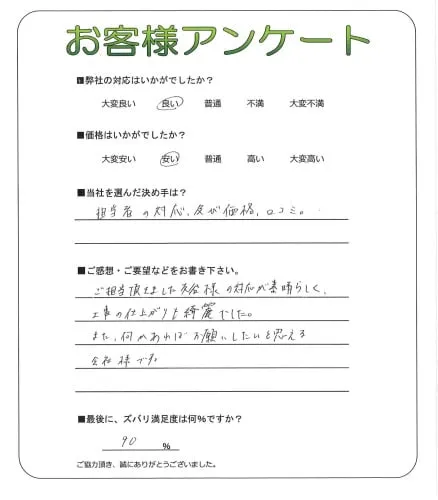 お客様アンケート
■弊社の対応はいかがでしたか?
大変良い 良い 普通 不満 大変不満
■価格はいかがでしたか?
大変安い 安い 普通 高い 大変高い
■当社を選んだ決め手は?
担当者の対応、及び価格、口コミ。
■ご感想・ご要望などをお書き下さい。
ご担当頂きました 様の対応が素晴らしく、
工事の仕上がりも綺麗でした。
また、何かあればお願いしたいと思える
会社様です。
■最後に、ズバリ満足度は何%ですか?
90 %
ご協力頂き、誠にありがとうございました。